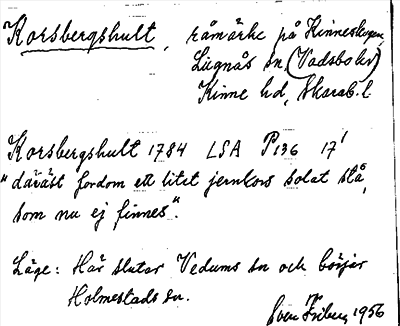 Korsbergshult, råmärke på Hinneskogen,
Lugnås sn (Vadsbo hd)
Kinne hd, Skarab. l.
Korsbergshult 1784 LSA P136 17¹
"däräst fordom ett litet jernkors solat stå,
som nu ej finnes".
Läge: Här slutar Vedums sn och börjar
Holmestads sn.
Sven Friberg 1956